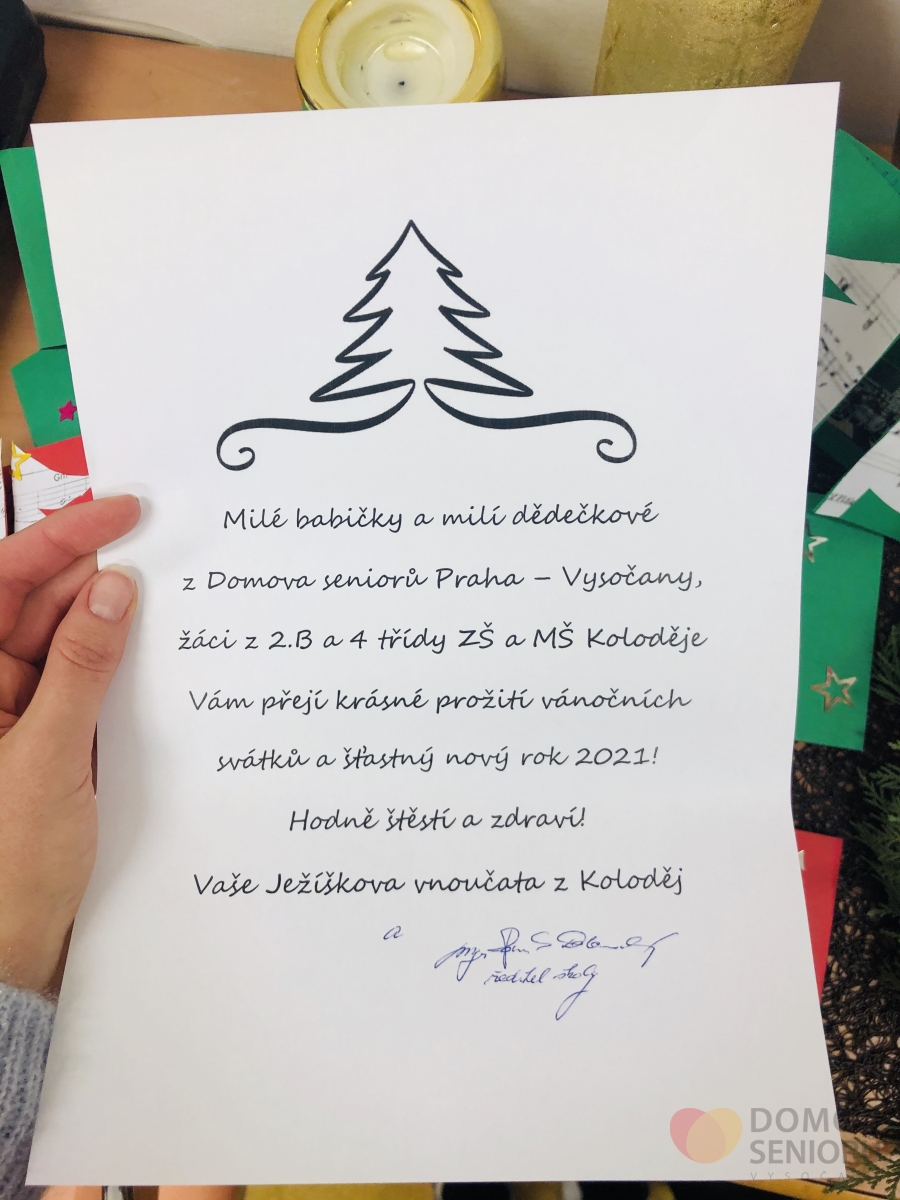 Milé babičky a milí dědečkové
z Domova seniorů Praha – Vysočany,
žáci z 2.B a 4 třídy ZŠ a MŠ Koloděje
Vám přejí krásné prožití vánočních
svátků a šťastný nový rok 2021!
Hodně štěstí a zdraví!
Vaše Ježíškova vnoučata z Koloděj
a
ředitel školy